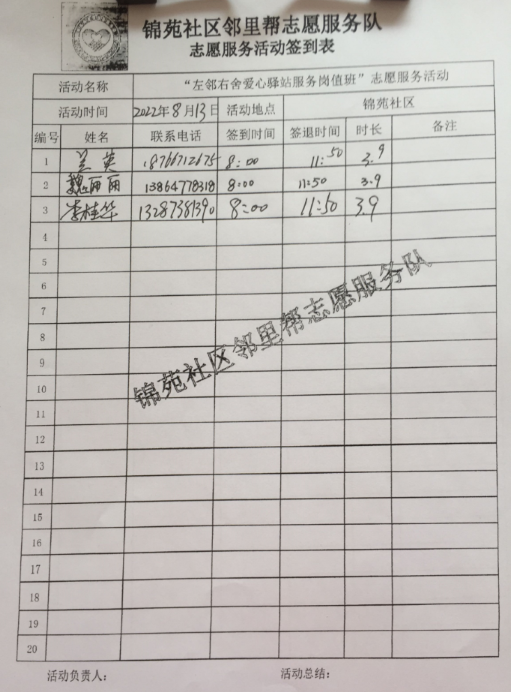 锦苑社区邻里帮志愿服务队
志愿服务活动签到表
活动名称 “左邻右舍爱心驿站服务岗值班”志愿服务活动
活动时间 2022年8月13日 活动地点 锦苑社区
编号 姓名 联系电话 签到时间 签退时间 时长 备注
1 兰英 18766712675 8:00 11:50 3.9
2 魏丽丽 13864778318 8:00 11:50 3.9
3 李桂华 13287381390 8:00 11:50 3.9
4
5
6
7
8
9
10
11
12
13
14
15
16
17
18
19
20
锦苑社区邻里帮志愿服务队
活动负责人: 活动总结: